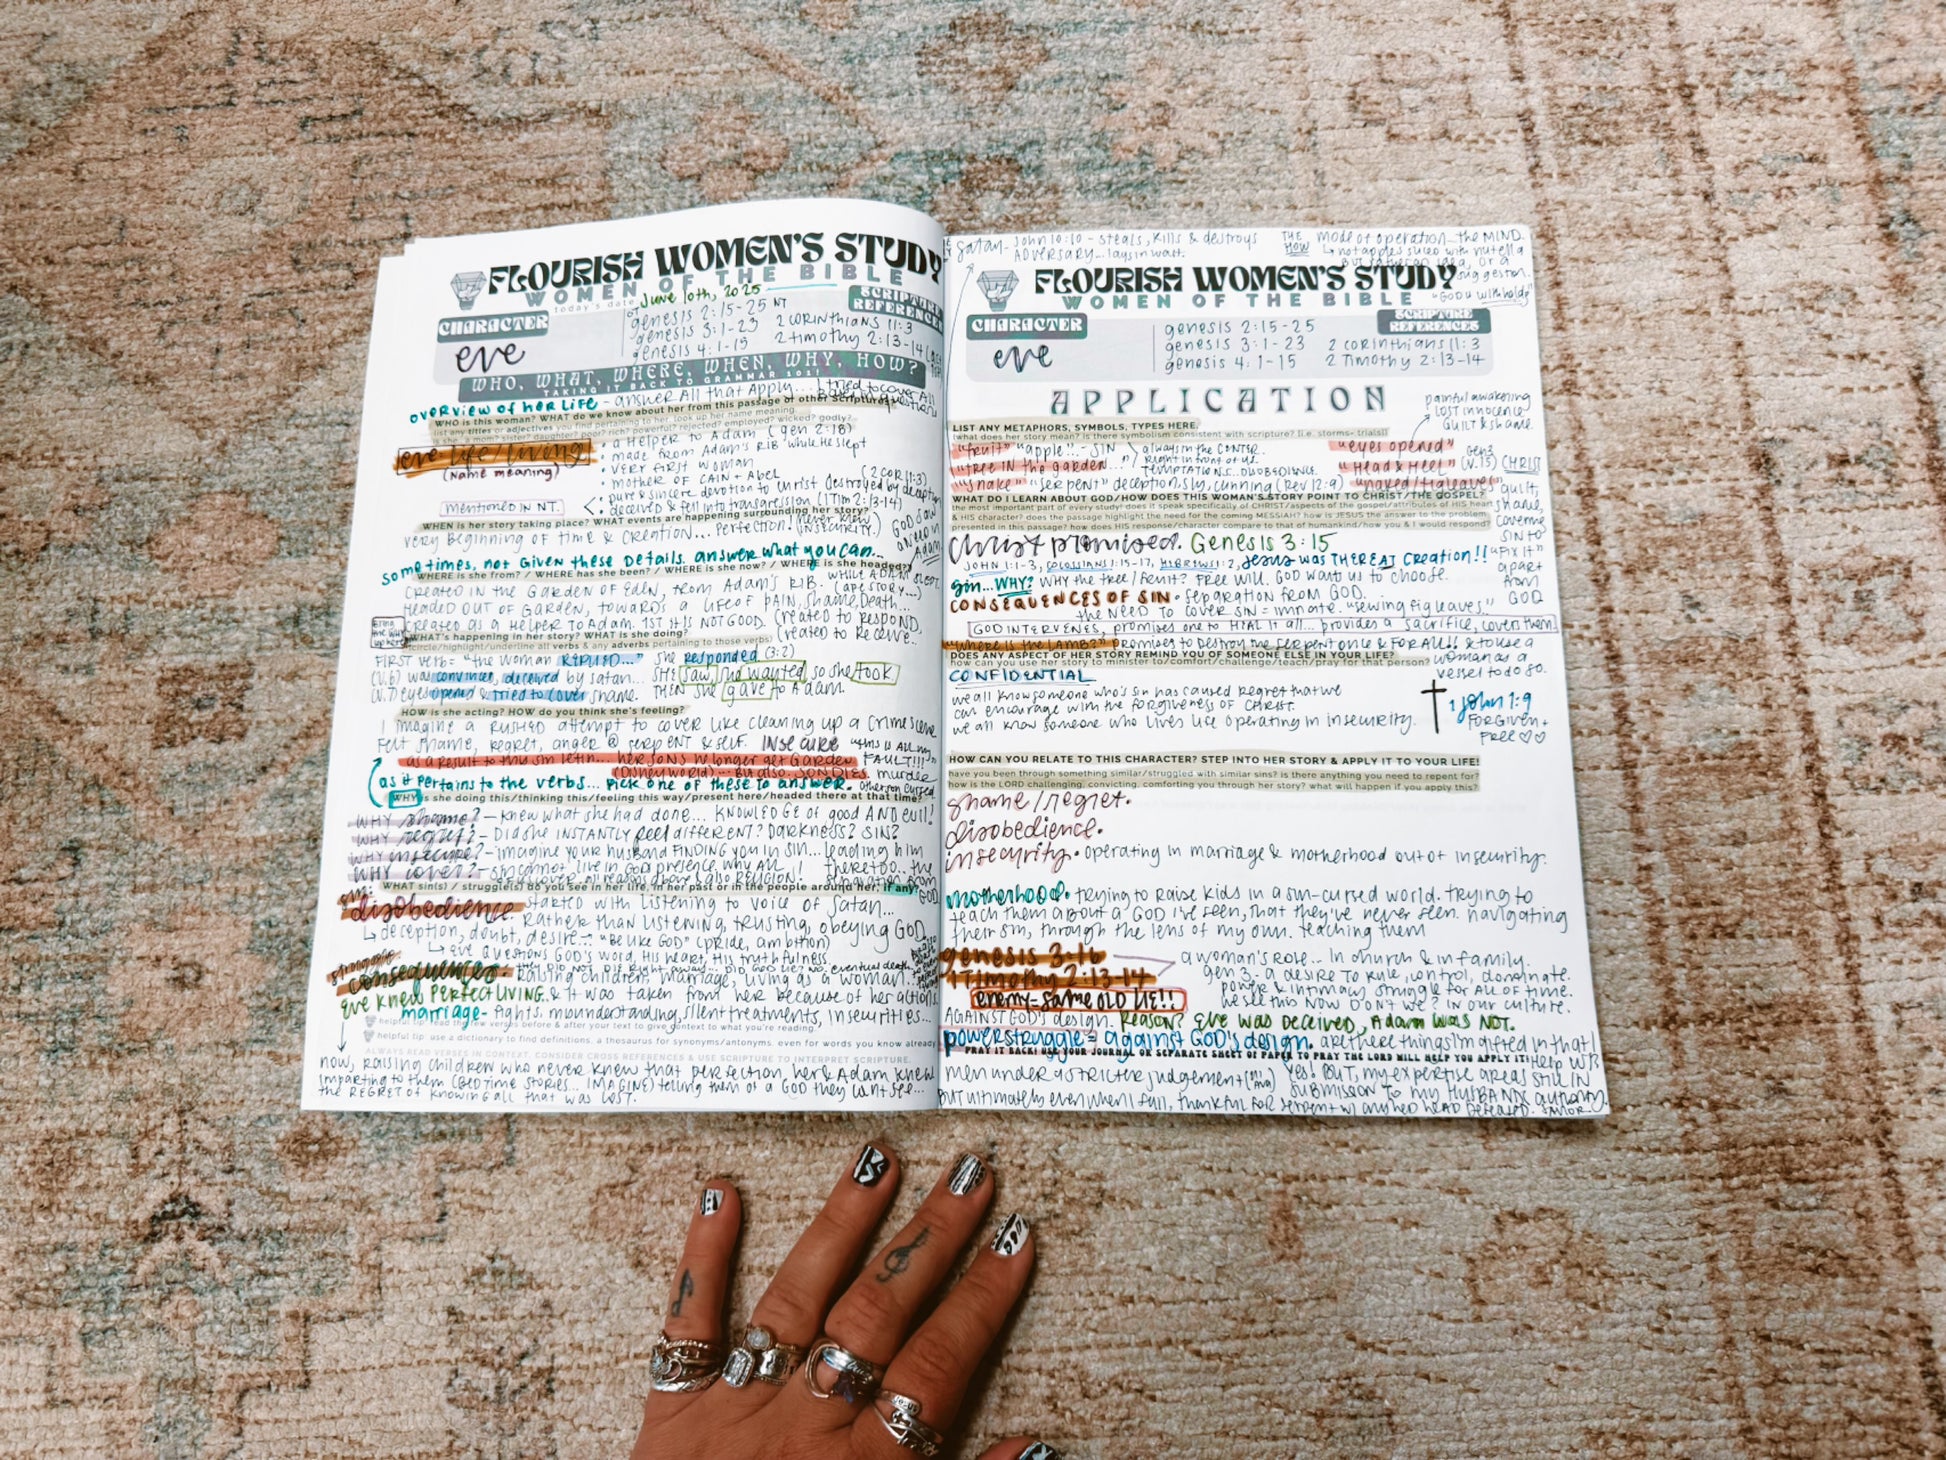 FLOURISH WOMEN'S STUDY
WOMEN OF THE BIBLE
today's date June 10th, 2025
CHARACTER
eve
OT
genesis 2:15-25 NT
genesis 3:1-23 2 corinthians 11:3
genesis 4:1-15 2 timothy 2:13-14
SCRIPTURE REFERENCES
WHO, WHAT, WHERE, WHEN, WHY, HOW?
TAKING IT BACK TO GRAMMAR 101!
overview of her life - answer all that apply... I tried to cover all
WHO is this woman? WHAT do we know about her from this passage or other Scriptures?
list any titles or adjectives you find pertaining to her. look up her name meaning.
is she.. a mom? sister? daughter? poor? rich? powerful? employed? wicked? godly?
eve = life/living
(name meaning)
• a Helper to Adam (gen 2:18)
• made from Adam's RIB while He slept
• very first woman
• mother of CAIN + Abel
(2 cor 11:3)
• pure & sincere devotion to Christ destroyed by deception
mentioned in NT.
• deceived & fell into transgression (1 Tim 2:13-14)
WHEN is her story taking place? WHAT events are happening surrounding her story?
very Beginning of time & creation... perfection! (never knew INSECURITY.)
sometimes, not Given these details. answer what you can...
WHERE is she from? / WHERE has she been? / WHERE is she now? / WHERE is she headed?
created in the Garden of Eden, from Adam's RIB. WHILE ADAM SLEPT.
Headed out of Garden, towards a life of PAIN, Shame, Death...
created as a Helper to Adam. 1st it is NOT GOOD. (created to respond,
created to Receive..
WHAT's happening in her story? WHAT is she doing?
(circle/highlight/underline all verbs & any adverbs pertaining to those verbs)
FIRST verb = "the woman REPLIED..." She responded (3:2)
(v.6) was convinced, deceived by satan... she saw, she wanted so she took
(v.7) eyes opened & tried to cover shame. THEN she gave to Adam.
HOW is she acting? HOW do you think she's feeling?
I imagine a RUSHED attempt to cover like cleaning up a crime scene
felt shame, regret, anger @ serpent & self. INSECURE "this is all my FAULT!!!"
as a result to this sin let in... her sons no longer get Garden
(Disney world)... But also, SON DIES. murder
as it pertains to the verbs... pick one of these to answer. other son cursed
WHY is she doing this/thinking this/feeling this way/present here/headed there at that time?
WHY shame? - knew what she had done... KNOWLEDGE of good AND evil!
WHY regret? - Did she INSTANTLY feel different? Darkness? Sin?
WHY insecure? - imagine your husband FINDING you in sin... leading him
WHY cover? - sin cannot live in God's presence.
WHAT sin(s) / struggle(s) do you see in her life, in her past or in the people around her, if any?
sin:
disobedience. started with listening to voice of Satan...
rather than listening, trusting, obeying GOD.
↳ deception, doubt, desire... "Be like GOD" (pride, ambition)
↳ eve questions GOD's word, His heart, His truthfulness.
struggles:
consequences. Raising children, marriage, living as a woman...
eve knew PERFECT LIVING & it was taken from her because of her actions.
marriage - fights, misunderstanding, silent treatments, insecurities...
helpful tip: read the few verses before & after your text to give context to what you're reading.
helpful tip: use a dictionary to find definitions, a thesaurus for synonyms/antonyms. even for words you know already
ALWAYS READ VERSES IN CONTEXT. CONSIDER CROSS REFERENCES & USE SCRIPTURE TO INTERPRET SCRIPTURE.
now, raising children who never knew that perfection, her & Adam knew
imparting to them (BED time stories... IMAGINE) telling them of a GOD they can't see...
the REGRET of knowing all that was lost.
satan - John 10:10 - steals, kills & destroys
ADVERSARY... lays in wait.
THE HOW
mode of operation - the MIND.
↳ not apples sliced with nutella
But rather an idea, or a suggestion.
"GOD is withholding"
FLOURISH WOMEN'S STUDY
WOMEN OF THE BIBLE
CHARACTER
eve
genesis 2:15-25
genesis 3:1-23 2 corinthians 11:3
genesis 4:1-15 2 Timothy 2:13-14
SCRIPTURE REFERENCES
APPLICATION
painful awakening
LOST innocence
GUILT & shame.
LIST ANY METAPHORS, SYMBOLS, TYPES HERE.
(what does her story mean? is there symbolism consistent with scripture? [i.e. storms= trials])
"fruit" "apple" - SIN
"tree in the garden"
always in the CENTER.
Right in front of us.
TEMPTATIONS... DISOBEDIENCE.
"snake" "serpent" deception, sly, cunning (Rev 12:9)
"eyes opened"
"Head & Heel" Gen 3 (v.15) CHRIST
"naked/figleaves" guilt, shame,
WHAT DO I LEARN ABOUT GOD/HOW DOES THIS WOMAN'S STORY POINT TO CHRIST/THE GOSPEL?
the most important part of every study! does it speak specifically of CHRIST/aspects of the gospel/attributes of HIS heart
& HIS character? does the passage highlight the need for the coming MESSIAH? how is JESUS the answer to the problem
presented in this passage? how does HIS response/character compare to that of humankind/how you & I would respond?
Christ promised. Genesis 3:15
JOHN 1:1-3, COLOSSIANS 1:15-17, HEBREWS 1:2, Jesus was THERE AT creation!!
sin... WHY? WHY the tree/fruit? Free will. GOD wants us to choose.
"FIX IT" apart from GOD
CONSEQUENCES OF SIN • separation from GOD.
the NEED to cover sin = innate. "sewing fig leaves"
GOD INTERVENES, promises one to HEAL it all... provides a sacrifice, covers them
"where is the lamb?" promises to Destroy the serpent once & FOR ALL!! & to use a woman as a vessel to do so.
DOES ANY ASPECT OF HER STORY REMIND YOU OF SOMEONE ELSE IN YOUR LIFE?
how can you use her story to minister to/comfort/challenge/teach/pray for that person?
CONFIDENTIAL
we all know someone who's sin has caused regret that we
can encourage with the forgiveness of CHRIST.
we all know someone who lives life operating in insecurity.
1 John 1:9
FORGIVEN +
Free ♡♡
HOW CAN YOU RELATE TO THIS CHARACTER? STEP INTO HER STORY & APPLY IT TO YOUR LIFE!
have you been through something similar/struggled with similar sins? is there anything you need to repent for?
how is the LORD challenging, convicting, comforting you through her story? what will happen if you apply this?
shame/regret.
disobedience.
insecurity. operating in marriage & motherhood out of insecurity.
motherhood. trying to raise kids in a sin-cursed world. trying to
teach them about a GOD I've seen, that they've never seen. navigating
their sin, through the lens of my own. teaching them
genesis 3:16
1 Timothy 2:13-14
enemy - same OLD LIE!!
a woman's role... in church & in family.
gen 3 - a desire to rule, control, dominate.
power & intimacy struggle for ALL OF TIME.
we see this NOW DON'T WE? IN our culture.
AGAINST GOD'S design. Reason? eve was deceived, Adam was NOT.
power struggle = against GOD's design. are there things I'm gifted in that I
PRAY IT BACK! USE YOUR JOURNAL OR SEPARATE SHEET OF PAPER TO PRAY THE LORD WILL HELP YOU APPLY IT!
men under a stricter judgement
Yes! BUT, my expertise areas STILL IN
submission to my HUSBANDS authority.
But ultimately even when I fall, thankful for